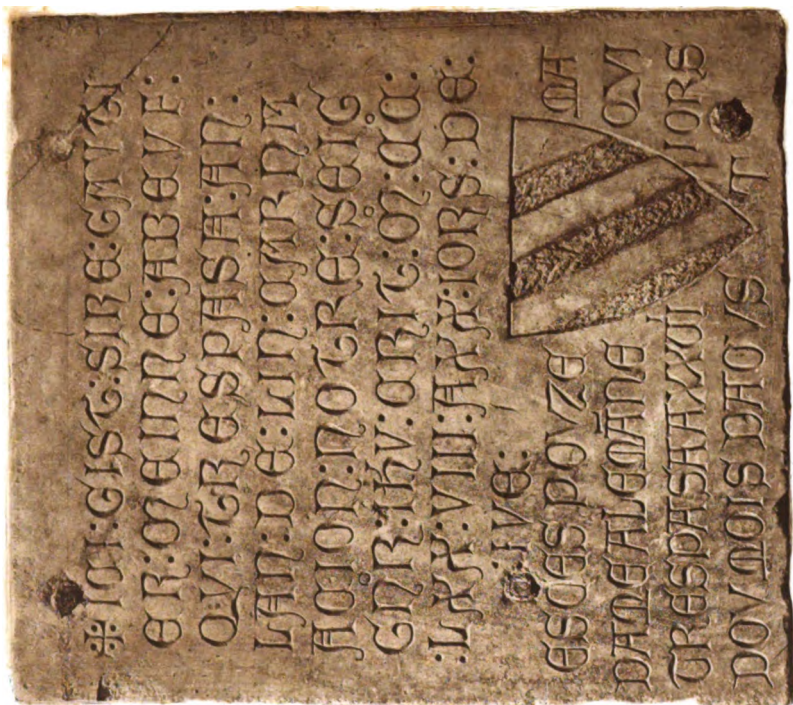 ✠ ICI : GIST : SIRE : GAVTI
ER : MEINNE : ABEVF :
QVI : TRESPASA : AN :
LAN : DE : LIN : CARNA
ACION : NOTRE : SEIG
GNR : IHV : CRIT : M : CC :
: LXX : VIII : A XX : IORS : DE :
IVE :
ESCES POVZE MA
DAME ALEMANE QVI
TRESPASA A XXVI IORS
DOV MOIS DAOVST